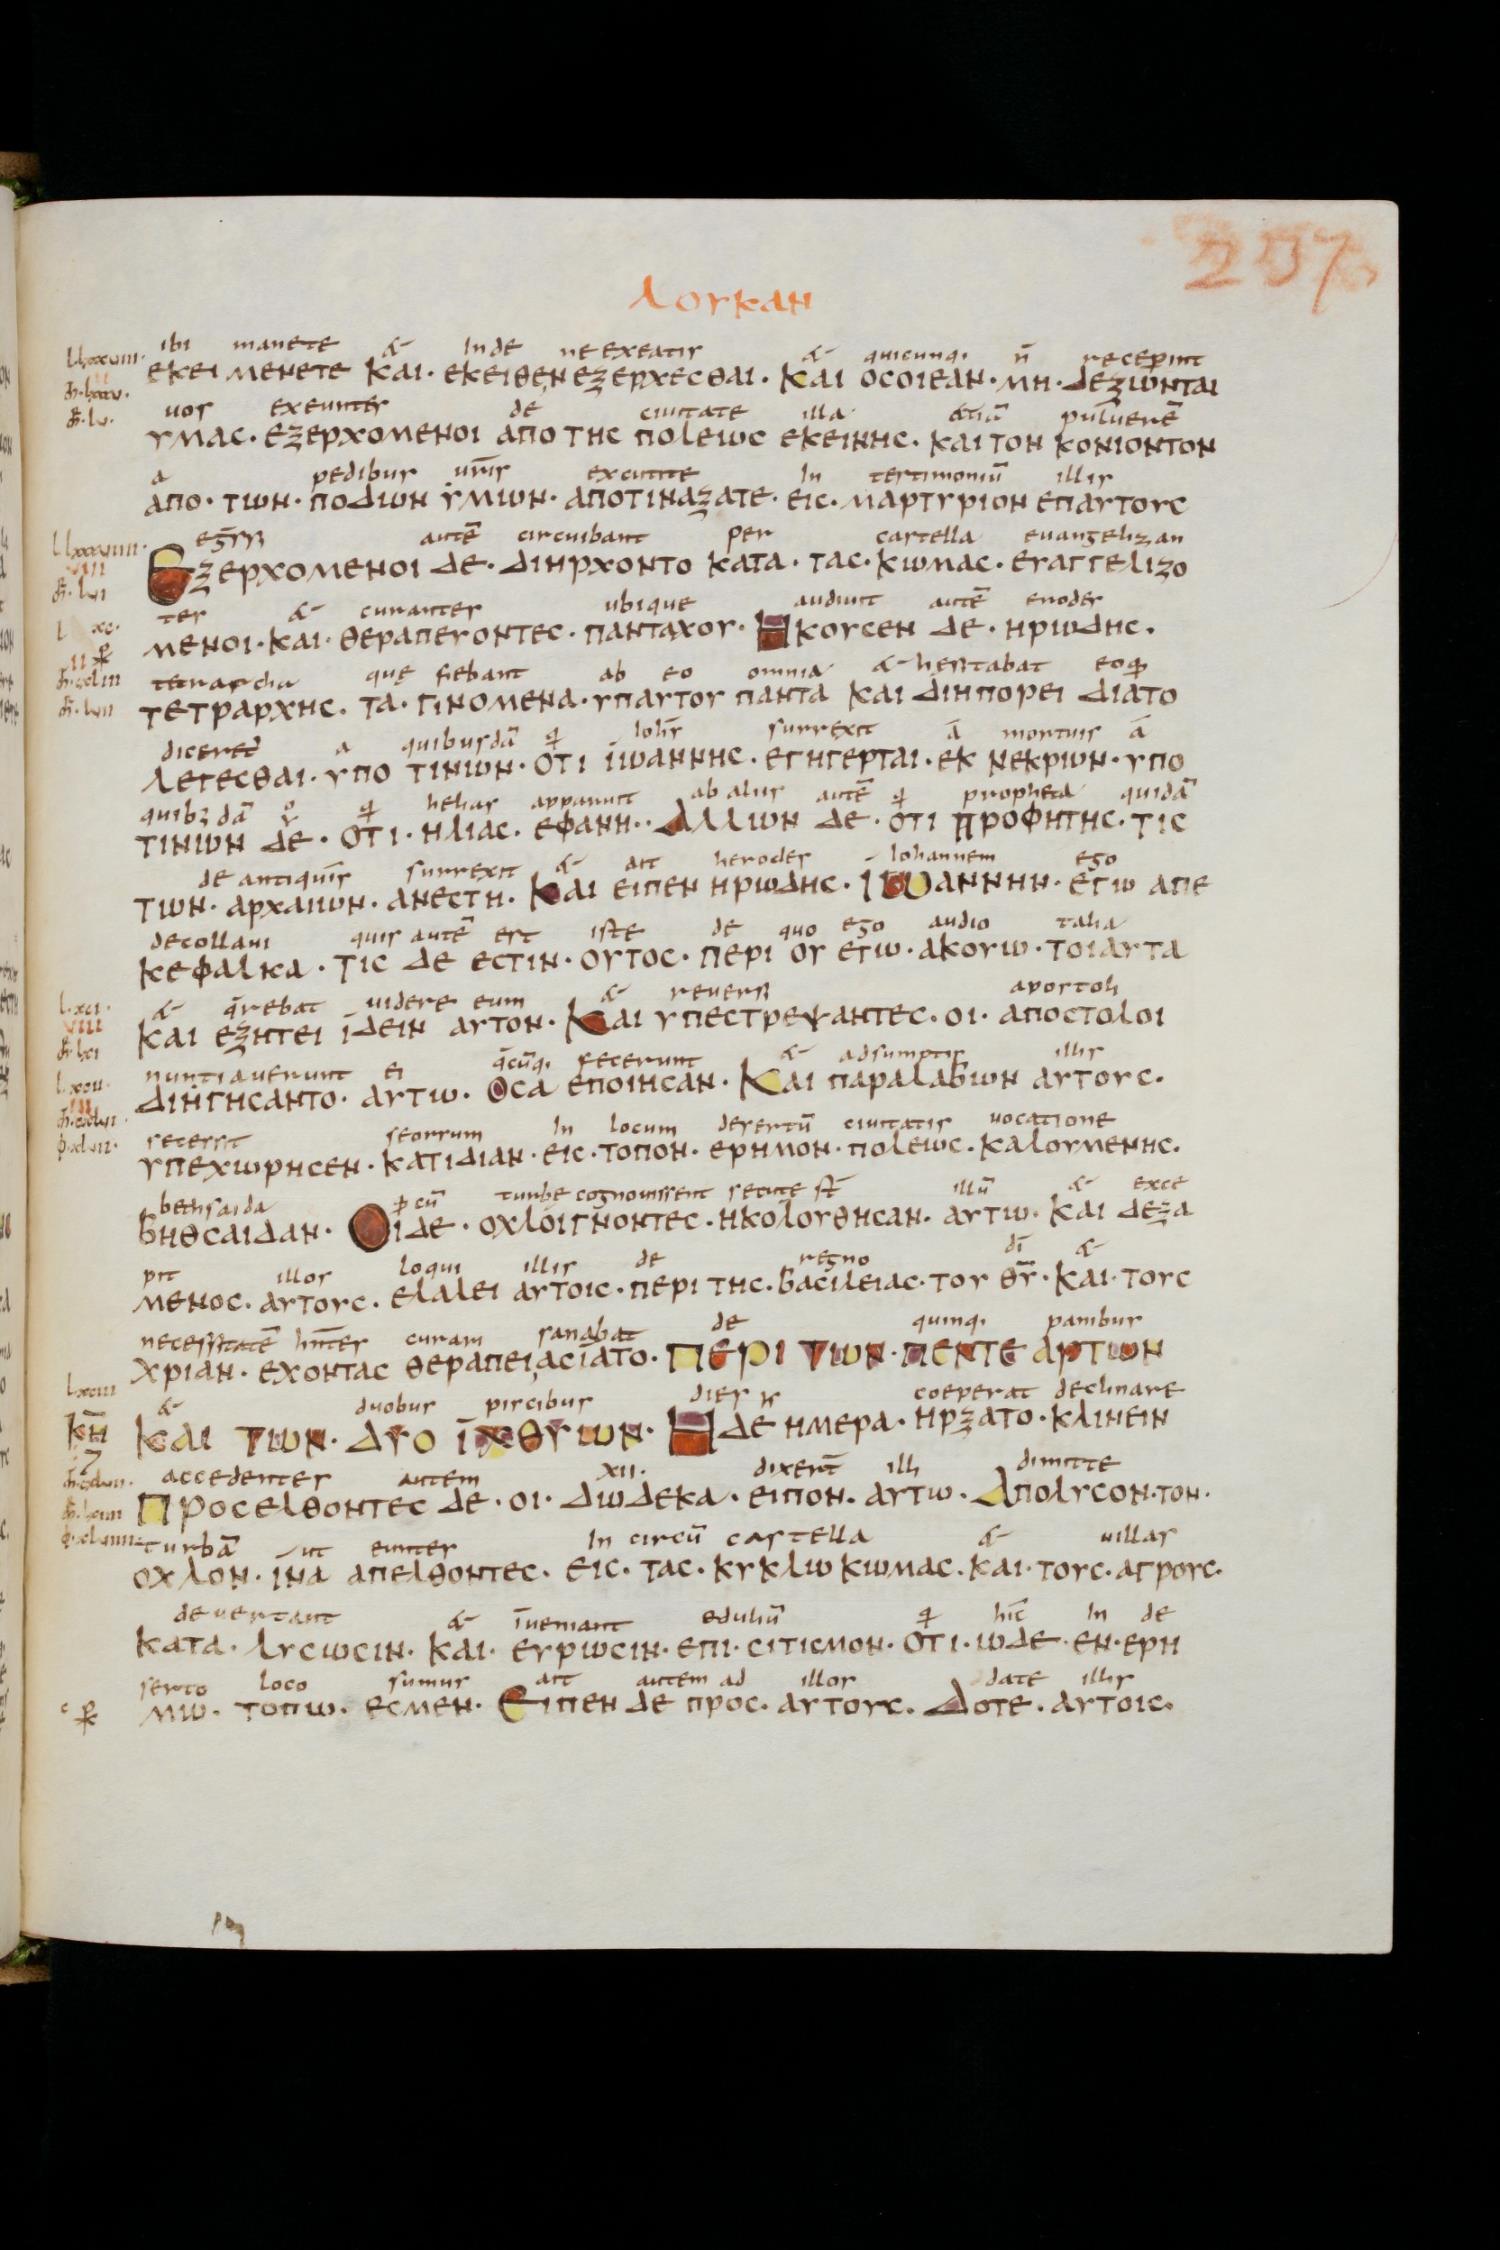 257
ΛΟΥΚΑΝ
ibi manete & inde ne exeatis & quicunq· n̄ receperint
ΕΚΕΙ ΜΕΝΕΤΕ ΚΑΙ· ΕΚΕΙΘΕΝ ΕΞΕΡΧΕСΘΑΙ· ΚΑΙ ΟСΟΙΕΑΝ· ΜΗ· ΔΕΞΩΝΤΑΙ
uos exeuntes de ciuitate illa etiā puluerē
ΥΜΑС· ΕΞΕΡΧΟΜΕΝΟΙ ΑΠΟ ΤΗС ΠΟLΕΙΩС ΕΚΕΙΝΗС· ΚΑΙ ΤΟΝ ΚΟΝΙΟΝΤΟΝ
a pedibus ur̄is excutite in testimoniū illis
ΑΠΟ· ΤΩΝ· ΠΟΔΙΩΝ ΥΜΙΩΝ· ΑΠΟΤΙΝΑΞΑΤΕ· ΕΙС· ΜΑΡΤΥΡΙΟΝ ΕΠΑΥΤΟΥС
autē circuibant per castella euangelizan
ΕΞΕΡΧΟΜΕΝΟΙ ΔΕ· ΔΙΗΡΧΟΝΤΟ ΚΑΤΑ· ΤΑС· ΚΩΜΑС· ΕΥΑΓΓΕΛΙΖΟ
tes & curantes ubique audiit autē erodes
ΜΕΝΟΙ· ΚΑΙ· ΘΕΡΑΠΕΥΟΝΤΕС· ΠΑΝΤΑΧΟΥ· ΗΚΟΥСΕΝ ΔΕ· ΗΡΩΔΗС·
tetrarcha quę fiebant ab eo omnia & hesitabat eoq̄
ΤΕΤΡΑΡΧΗС· ΤΑ· ΓΙΝΟΜΕΝΑ· ΥΠΑΥΤΟΥ ΠΑΝΤΑ ΚΑΙ ΔΙΗΠΟΡΕΙ ΔΙΑΤΟ
diceret a quibusdā q̄ ioh̄s surrexit ā mortuis ā
ΛΕΓΕСΘΑΙ· ΥΠΟ ΤΙΝΙΩΝ· ΟΤΙ ΪΩΑΝΝΗС· ΕΓΗΓΕΡΤΑΙ· ΕΚ ΝΕΚΡΙΩΝ· ΥΠΟ
quibꝫdā q̄ helias apparuit ab aliis autē q̄ propheta quidā
ΤΙΝΙΩΝ ΔΕ· ΟΤΙ· ΗΛΙΑС· ΕΦΑΝΗ·· ΑΛΛΙΩΝ ΔΕ· ΟΤΙ ΠΡΟΦΗΤΗС· ΤΙС
de antiquis surrexit & ait herodes iohannem ego
ΤΩΝ· ΑΡΧΑΙΩΝ· ΑΝΕСΤΗ· ΚΑΙ ΕΙΠΕΝ ΗΡΩΔΗС· ΪΩΑΝΝΗΝ· ΕΓΩ ΑΠΕ
decollaui quis autē est iste de quo ego audio talia
ΚΕΦΑLΙΚΑ· ΤΙС ΔΕ ΕСΤΙΝ· ΟΥΤΟС· ΠΕΡΙ ΟΥ ΕΓΩ· ΑΚΟΥΩ· ΤΟΙΑΥΤΑ
& q̄rebat uidere eum & reuersi apostoli
ΚΑΙ ΕΞΗΤΕΙ ΪΔΕΙΝ ΑΥΤΟΝ· ΚΑΙ ΥΠΕСΤΡΕΨΑΝΤΕС· ΟΙ· ΑΠΟСΤΟLΟΙ
nuntiauerunt ei q̄cūq· fecerunt & adsumptis illis
ΔΙΗΓΗСΑΝΤΟ· ΑΥΤΩ· ΟСΑ ΕΠΟΙΗСΑΝ· ΚΑΙ ΠΑΡΑLΑΒΙΩΝ ΑΥΤΟΥС·
secessit seorsum in locum desertū ciuitatis uocatione
ΥΠΕΧΩΡΗСΕΝ· ΚΑΤΙΔΙΑΝ· ΕΙС· ΤΟΠΟΝ· ΕΡΗΜΟΝ· ΠΟLΕΙΩС· ΚΑLΟΥΜΕΝΗС·
bethsaida cū turbe cognouissent secute st̄ illū & exce
ΒΗΘСΑΙΔΑΝ· ΟΙ ΔΕ· ΟΧLΟΙ ΓΝΟΝΤΕС· ΗΚΟLΟΥΘΗСΑΝ· ΑΥΤΩ· ΚΑΙ ΔΕΞΑ
pit illos loqui illis de regno dī &
ΜΕΝΟС· ΑΥΤΟΥС· ΕLΑLΕΙ ΑΥΤΟΙС· ΠΕΡΙ ΤΗС· ΒΑСΙLΕΙΑС· ΤΟΥ ΘῩ· ΚΑΙ· ΤΟΥС
necessitatē curam sanabat de quinq· panibus
ΧΡΙΑΝ· ΕΧΟΝΤΑС ΘΕΡΑΠΕΙΑС ΙΑΤΟ· ΠΕΡΙ ΤΩΝ· ΠΕΝΤΕ ΑΡΤΩΝ
& duobus piscibus dies coeperat declinare
ΚΑΙ ΤΩΝ· ΔΥΟ ΪΧΘΥΩΝ· Η ΔΕ ΗΜΕΡΑ· ΗΡΞΑΤΟ· ΚΛΙΝΕΙΝ
accedentes autem xii· dixert̄ illi dimitte
ΠΡΟСΕLΘΟΝΤΕС ΔΕ· ΟΙ· ΔΩΔΕΚΑ· ΕΙΠΟΝ· ΑΥΤΩ· ΑΠΟLΥСΟΝ· ΤΟΝ·
turbā ut euntes in circū castella & uillas
ΟΧΛΟΝ· ΪΝΑ ΑΠΕLΘΟΝΤΕС· ΕΙС· ΤΑС· ΚΥΚΛΩ ΚΩΜΑС· ΚΑΙ· ΤΟΥС· ΑΓΡΟΥС·
deuertant & īueniant eduliū q̄ hic in de
ΚΑΤΑ· LΥСΩСΙΝ· ΚΑΙ· ΕΥΡΙΩСΙΝ· ΕΠΙ· СΙΤΙСΜΟΝ· ΟΤΙ· ΙΩΔΕ· ΕΝ· ΕΡΗ
serto loco sumus ait autem ad illos date illis
ΜΩ· ΤΟΠΩ· ΕСΜΕΝ· ΕΙΠΕΝ ΔΕ ΠΡΟС· ΑΥΤΟΥС· ΔΟΤΕ· ΑΥΤΟΙС·